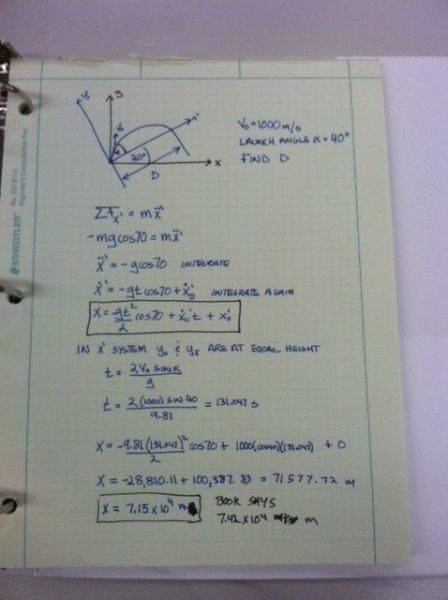 STAEDTLER
No. 937 811E
Engineer's Computation Pad
y'
y
V₀
x'
α
20°
x
D
V₀=1000 m/s
LAUNCH ANGLE α = 40°
FIND D
ΣFx' = mẍ'
-mg cos70 = mẍ'
ẍ' = -g cos70 INTEGRATE
ẋ' = -gt cos70 + ẋ₀' INTEGRATE AGAIN
X = -gt²/2 cos70 + ẋ₀' t + x₀'
IN X' SYSTEM y₀ & yF ARE AT EQUAL HEIGHT
t = 2V₀ sin α / g
t = 2(1000) sin 40 / 9.81 = 131.047 s
X = -9.81(131.047)²/2 cos70 + 1000(cos40)(131.047) + 0
X = -28,810.11 + 100,387.83 = 71577.72 m
X = 7.15 x 10⁴ m
BOOK SAYS
7.42 x 10⁴ m